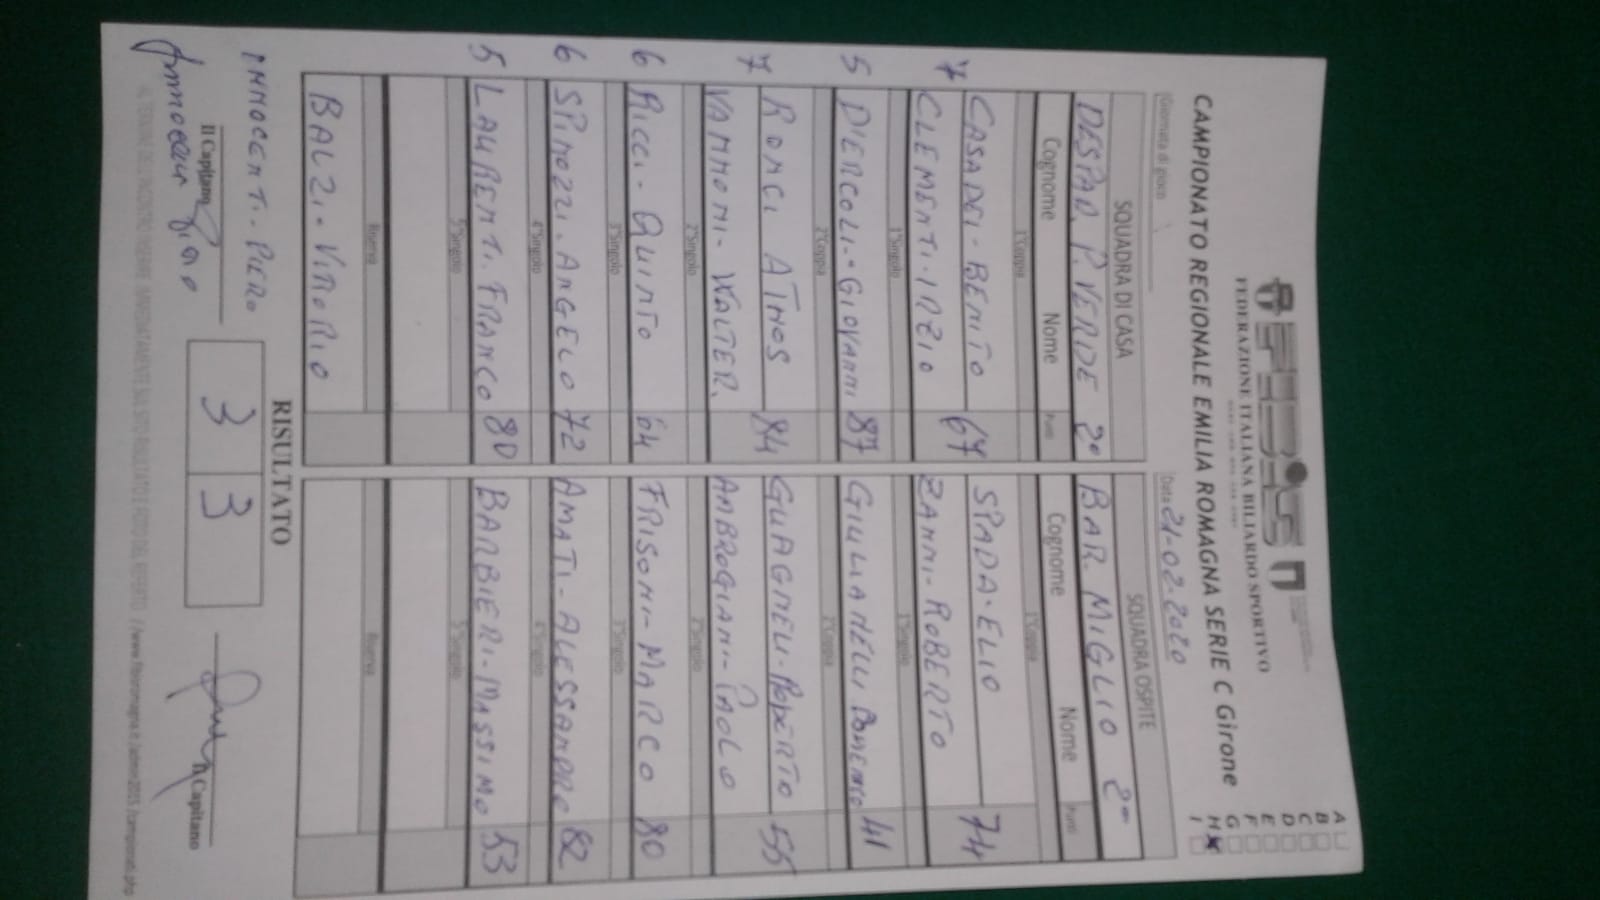 FEDERAZIONE ITALIANA BILIARDO SPORTIVO
CAMPIONATO REGIONALE EMILIA ROMAGNA SERIE C Girone
A
B
C
D
E
F
G
H X
I
Giornata di gioco
Data 21-02-2020
SQUADRA DI CASA SQUADRA OSPITE
DESPAR. P. VERDE 20 BAR. MIGLIO 2
Cognome Nome Punti Cognome Nome Punti
1°Coppia 1°Coppia
7 CASADEI-BENITO 67 SPADA-ELIO 74
CLEMENTI-IRZIO ZANNI-ROBERTO
1°Singolo 1°Singolo
5 DIERCOLI-GIOVANNI 87 GIULIANELLI DOMENICO 41
2°Coppia 2°Coppia
7 RONCI ATHOS 84 GUAGNELI-ROBERTO 55
VANNONI-WALTER. AMBROGIANI-PAOLO
2°Singolo 2°Singolo
6 RICCI-QUINTO 64 FRISONI-MARCO 80
3°Singolo 3°Singolo
6 SPINOZZI.ANGELO 72 AMATI-ALESSANDRO 82
4°Singolo 4°Singolo
5 LAURENTI.FRANCO 80 BARBIERI-MASSIMO 53
5°Singolo 5°Singolo
Riserva Riserva
BALZI-VITTORIO
RISULTATO
INNOCENTI-PIERO 3 3
Il Capitano Il Capitano